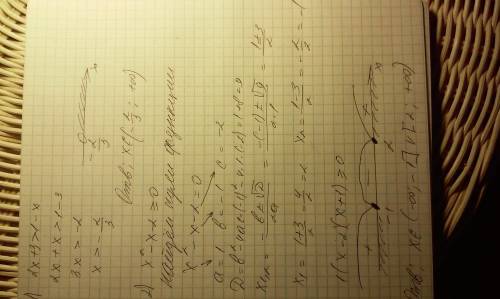 1) 2x+3>1-x
2x+x>1-3
3x>-2
x>-2/3
-2/3 x
Отв: x∈(-2/3; +∞)
2) x²-x-2≥0
Найдём нули функции
x²-x-2=0
a=1 b=-1 c=-2
D=b²-4ac=(-1)²-4·1·(-2)=1+8=9
x₁,₂=(-b±√D)/2a=(-(-1)±√9)/2·1=(1±3)/2
x₁=(1+3)/2=4/2=2 x₂=(1-3)/2=-2/2=-1
1(x-2)(x+1)≥0
+ - +
-1 2 x
Отв: x∈(-∞; -1]∪[2; +∞)